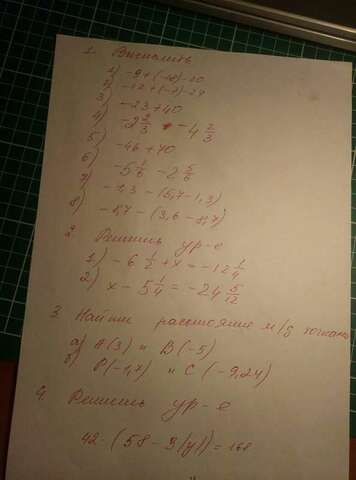 1. Вычислить
1) -9+(-10)-20
2) -12+(-7)-24
3) -23+40
4) -2 2/3 - 4 2/3
5) -46+70
6) -5 1/6 - 2 5/6
7) -1,3-(5,7-1,3)
8) -5,7-(3,6-8,7)
2. Решить ур-е
1) -6 1/2+x=-12 1/4
2) x-5 1/4=-24 5/12
3. Найти расстояние м/д точками
а) A(3) и B(-5)
б) P(-1,7) и C(-9,24)
4. Решить ур-е
42-(58-3|y|)=168